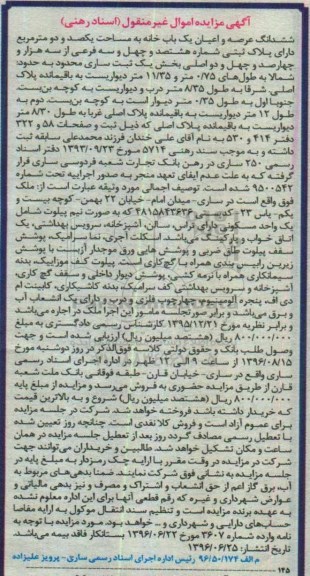 آگهی مزایده اموال غیر منقول (اسناد رهنی)
ششدانگ عرصه و اعیان یک باب خانه به مساحت یکصد و دو مترمربع
دارای پلاک ثبتی شماره هشتصد و چهل و سه فرعی از سه هزار و
چهارصد و چهل و دو اصلی بخش یک ثبت ساری محدود به حدود:
شمالا به طول‌های ۰/۷۵ متر و ۱۱/۳۵ متر دیواریست به باقیمانده پلاک
اصلی. شرقا به طول ۸/۳۵ متر درب و دیواریست به کوچه بن‌بست.
جنوبا اول به طول ۰/۳۵ متر دیوار است به کوچه بن‌بست. دوم به
طول ۱۲ متر دیواریست به باقیمانده پلاک اصلی غربا به طول ۸/۳۰ متر
دیواریست به باقیمانده پلاک اصلی که ذیل ثبت و صفحات ۵۸ و ۳۲۲
دفتر ۴۱۴ و ۵۳۰ به نام آقای علی خندان فرزند محمدعلی سابقه ثبت
داشته و به موجب سند رهنی ۵۷۱۴ مورخ ۱۳۹۳/۰۹/۲۳ دفتر اسناد
رسمی ۲۵۰ ساری در رهن بانک تجارت شعبه فردوسی ساری قرار
گرفته که به علت عدم ایفای تعهد منجر به صدور اجراییه تحت شماره
۹۵۰۰۵۴۲ شده است. توصیف اجمالی مورد وثیقه عبارت است از: ملک
فوق واقع است در ساری- میدان امام- خیابان ۲۲ بهمن- کوچه بیست و
یکم- پاس ۲۳- کدپستی ۴۸۱۵۸۴۳۶۳۶ که به صورت نیم پیلوت شامل
یک واحد مسکونی دارای تراس، سالن، آشپزخانه، سرویس بهداشتی، یک
اتاق خواب و پارکینگ می‌باشد. اسکلت آجری، نما سرامیک، پوشش
سقف پیلوت طاق ضربی و پوشش هایی ورق موجدار آردواست با پوشش
زیرین رابیس بندی همراه با گچ‌کاری است. پوشش کف موزاییک، بدنه
سفیدکاری همراه با ازمه کشی، پوشش دیوار داخلی و سقف گچ کاری،
آشپزخانه و سرویس بهداشتی کف سرامیک، بدنه کاشیکاری، کابینت ام
دی اف، پنجره آلومینیوم، چهارچوب فلزی و درب و دارای یک انشعاب آب
و برق می‌باشد و برابر صورتجلسه مامور این اجرا ملک در اجاره می‌باشد
و برابر نظریه مورخ ۱۳۹۵/۱۲/۲۱ کارشناس رسمی دادگستری به مبلغ
۸۰۰/۰۰۰/۰۰۰ ریال (هشتصد میلیون ریال) ارزیابی شده است و جهت
وصول طلب بانک و حقوق دولتی کلاسه فوق‌الذکر در روز دوشنبه مورخ
۱۳۹۶/۰۸/۱۵ از ساعت ۹ الی ۱۲ ظهر در اداره اجرای اسناد رسمی
ساری واقع در ساری- خیابان قارن- طبقه فوقانی بانک ملت شعبه
قارن از طریق مزایده حضوری به فروش می‌رسد و مزایده از مبلغ پایه
۸۰۰/۰۰۰/۰۰۰ ریال (هشتصد میلیون ریال) شروع و به بالاترین قیمت
که خریدار داشته باشد فروخته خواهد شد و شرکت در جلسه مزایده
برای عموم آزاد است و فروش کلا نقدی است. چنانچه روز تعیین شده
با تعطیل رسمی مصادف گردد روز بعد از تعطیل جلسه مزایده در همان
ساعت و مکان تشکیل خواهد شد. طالبین و خریداران می‌توانند جهت
شرکت در مزایده در وقت مقرر با ارایه چک رمزدار به مبلغ پایه در
جلسه مزایده به نشانی فوق شرکت نمایند. ضمنا بدهی‌های مربوط به
آب، برق گاز اعم از حق انشعاب و اشتراک و مصرف و نیز بدهی مالیاتی و
عوارض شهرداری و غیره که رقم قطعی آنها برای این اداره معلوم نشده
به عهده برنده مزایده است و تنظیم سند انتقال موکول به ارایه مفاصا
حساب‌های دارایی و شهرداری و... خواهد بود. مورد مزایده با توجه به
نامه وارده شماره ۳۶۰۷ مورخ ۱۳۹۶/۰۶/۲۲ بستانکار فاقد بیمه می‌باشد.
تاریخ انتشار: ۱۳۹۶/۰۶/۲۵
م الف ۹۶/۵۰/۱۷۴ رئیس اداره اجرای اسناد رسمی ساری- پرویز علیزاده
۱۴۵